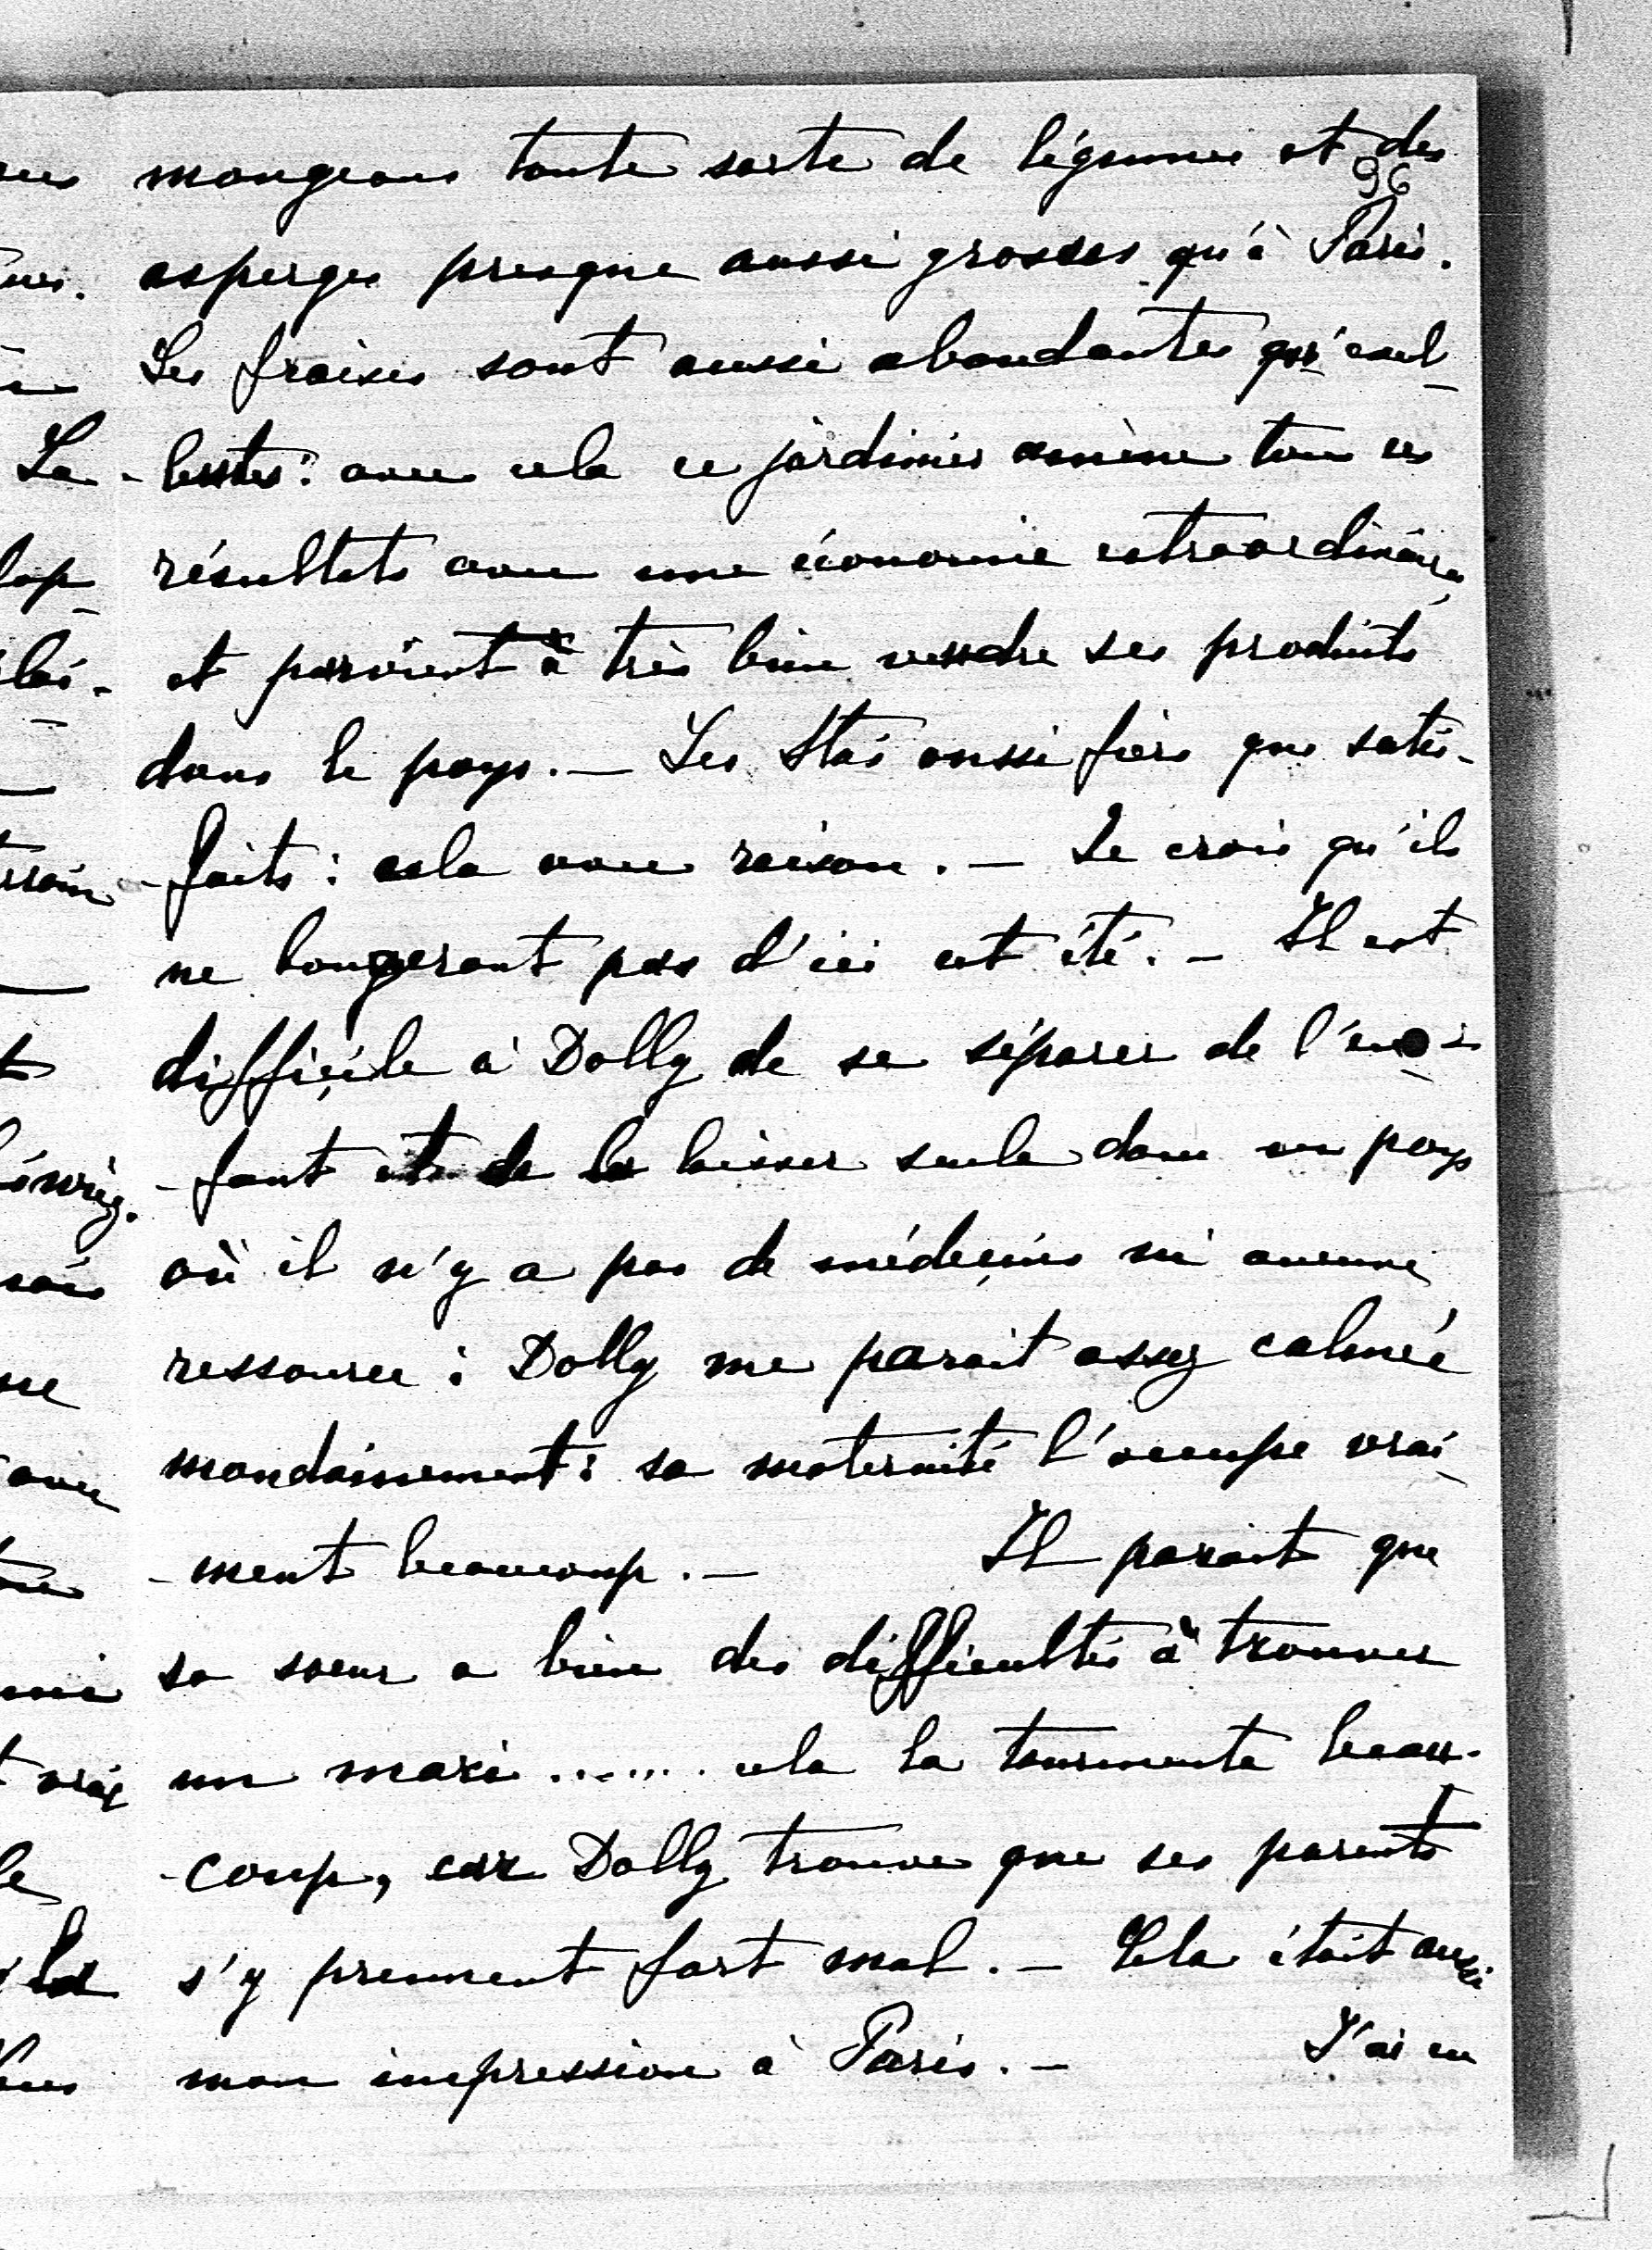 mangeons toute sorte de légumes et des
96
asperges presque aussi grosses qu'à Paris.
Les fraises sont aussi abondantes qu'excel
-lentes: avec cela ce jardinier amène tous ces
résultats avec une économie extraordinaire,
et parvient à très bien vendre ses produits
dans le pays. — Les Stas aussi fiers que satis-
-faits: cela avec raison. — Je crois qu'ils
ne bougeront pas d'ici cet été. — Il est
difficile à Dolly de se séparer de l'en-
-fant et de la laisser seule dans un pays
où il n'y a pas de médecins ni aucune
ressource: Dolly me parait assez calmée
mondainement: sa maternité l'occupe vrai
-ment beaucoup. — Il parait que
sa sœur a bien des difficultés à trouver
un mari ...... cela la tourmente beau-
-coup, car Dolly trouve que ses parents
s'y prennent fort mal. — Cela était aussi
mon impression à Paris. — J'ai eu